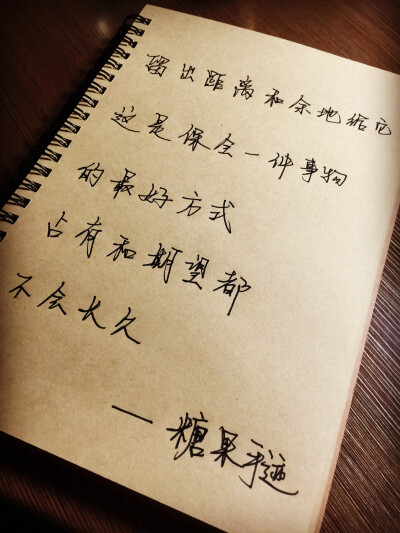 留出距离和余地给它
这是保全一件事物
的最好方式
占有和期望都
不会长久
一糖果手迹